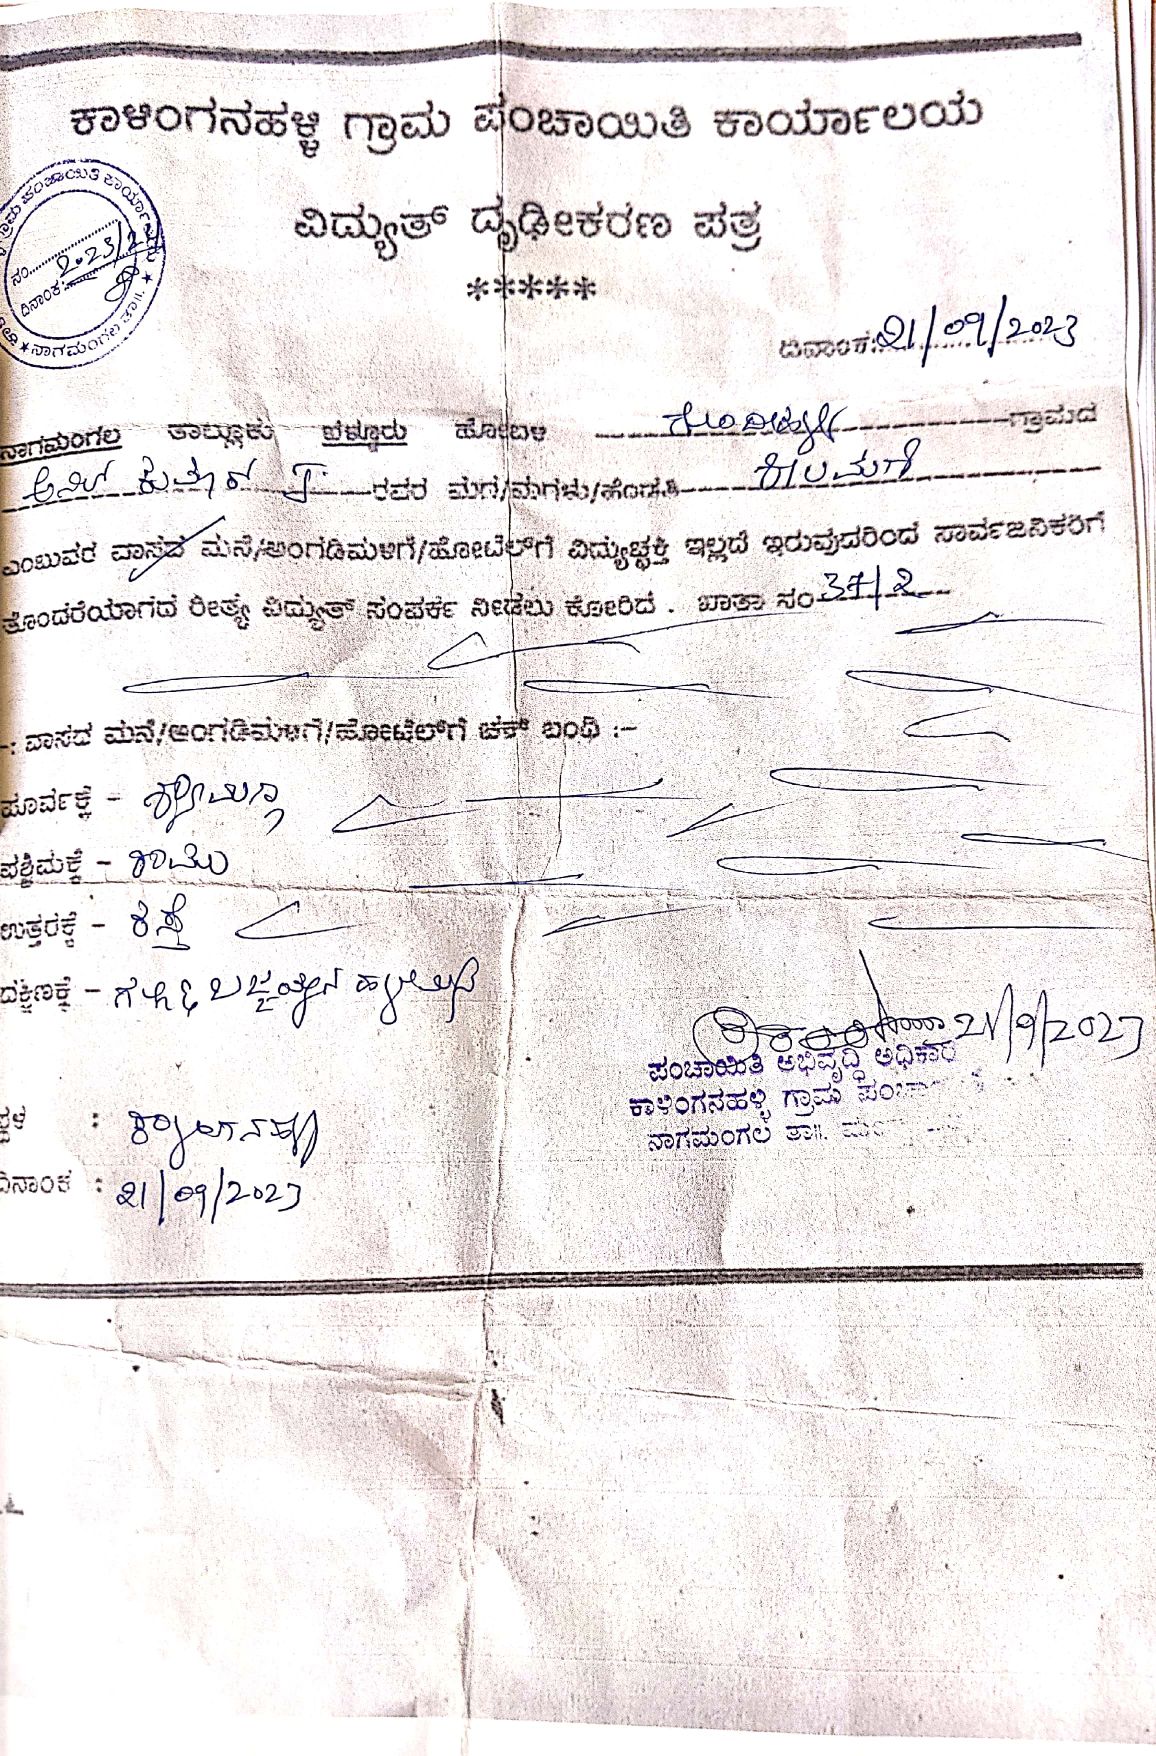 ಕಾಳಿಂಗನಹಳ್ಳಿ ಗ್ರಾಮ ಪಂಚಾಯಿತಿ ಕಾರ್ಯಾಲಯ
ವಿದ್ಯುತ್ ದೃಢೀಕರಣ ಪತ್ರ
*****
ಗ್ರಾಮ ಪಂಚಾಯಿತಿ ಕಾರ್ಯಾಲಯ
ನಂ. 2023/2
ದಿನಾಂಕ:
★ ನಾಗಮಂಗಲ ತಾ॥. ★
ದಿನಾಂಕ: 21/09/2023
ನಾಗಮಂಗಲ ತಾಲ್ಲೂಕು ಬೆಳ್ಳೂರು ಹೋಬಳಿ ಗ್ರಾಮದ
ಅನಿಲ್ ಕುಮಾರ್ ರವರ ಮಗ/ಮಗಳು/ಹೆಂಡತಿ
ಎಂಬುವರ ವಾಸದ ಮನೆ/ಅಂಗಡಿಮಳಿಗೆ/ಹೋಟೆಲ್‌ಗೆ ವಿದ್ಯುಚ್ಛಕ್ತಿ ಇಲ್ಲದೆ ಇರುವುದರಿಂದ ಸಾರ್ವಜನಿಕರಿಗೆ
ತೊಂದರೆಯಾಗದ ರೀತ್ಯ ವಿದ್ಯುತ್ ಸಂಪರ್ಕ ನೀಡಲು ಕೋರಿದೆ . ಖಾತಾ ಸಂ 37/2
-: ವಾಸದ ಮನೆ/ಅಂಗಡಿಮಳಿಗೆ/ಹೋಟೆಲ್‌ಗೆ ಚಕ್ ಬಂಧಿ :-
ಪೂರ್ವಕ್ಕೆ -
ಪಶ್ಚಿಮಕ್ಕೆ - ರಾಮು
ಉತ್ತರಕ್ಕೆ - ರಸ್ತೆ
ದಕ್ಷಿಣಕ್ಕೆ -
21/9/2023
ಪಂಚಾಯಿತಿ ಅಭಿವೃದ್ಧಿ ಅಧಿಕಾರಿ
ಕಾಳಿಂಗನಹಳ್ಳಿ ಗ್ರಾಮ ಪಂಚಾ
ನಾಗಮಂಗಲ ತಾ॥.
ಸ್ಥಳ : ಕಾಳಿಂಗನಹಳ್ಳಿ
ದಿನಾಂಕ : 21/09/2023